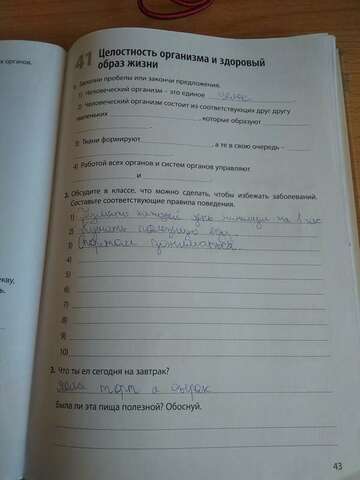 х органов.
41 Целостность организма и здоровый
образ жизни
1. Заполни пробелы или закончи предложения.
1) Человеческий организм – это единое целое
2) Человеческий организм состоит из соответствующих друг другу
маленьких , которые образуют
3) Ткани формируют , а те в свою очередь –
4) Работой всех органов и систем органов управляют
и
2. Обсудите в классе, что можно сделать, чтобы избежать заболеваний.
Составьте соответствующие правила поведения.
1) каждый день на 1 час
2) полезную еду
3)
4)
5)
6)
7)
8)
9)
10)
3. Что ты ел сегодня на завтрак?
Была ли эта пища полезной? Обоснуй.
43